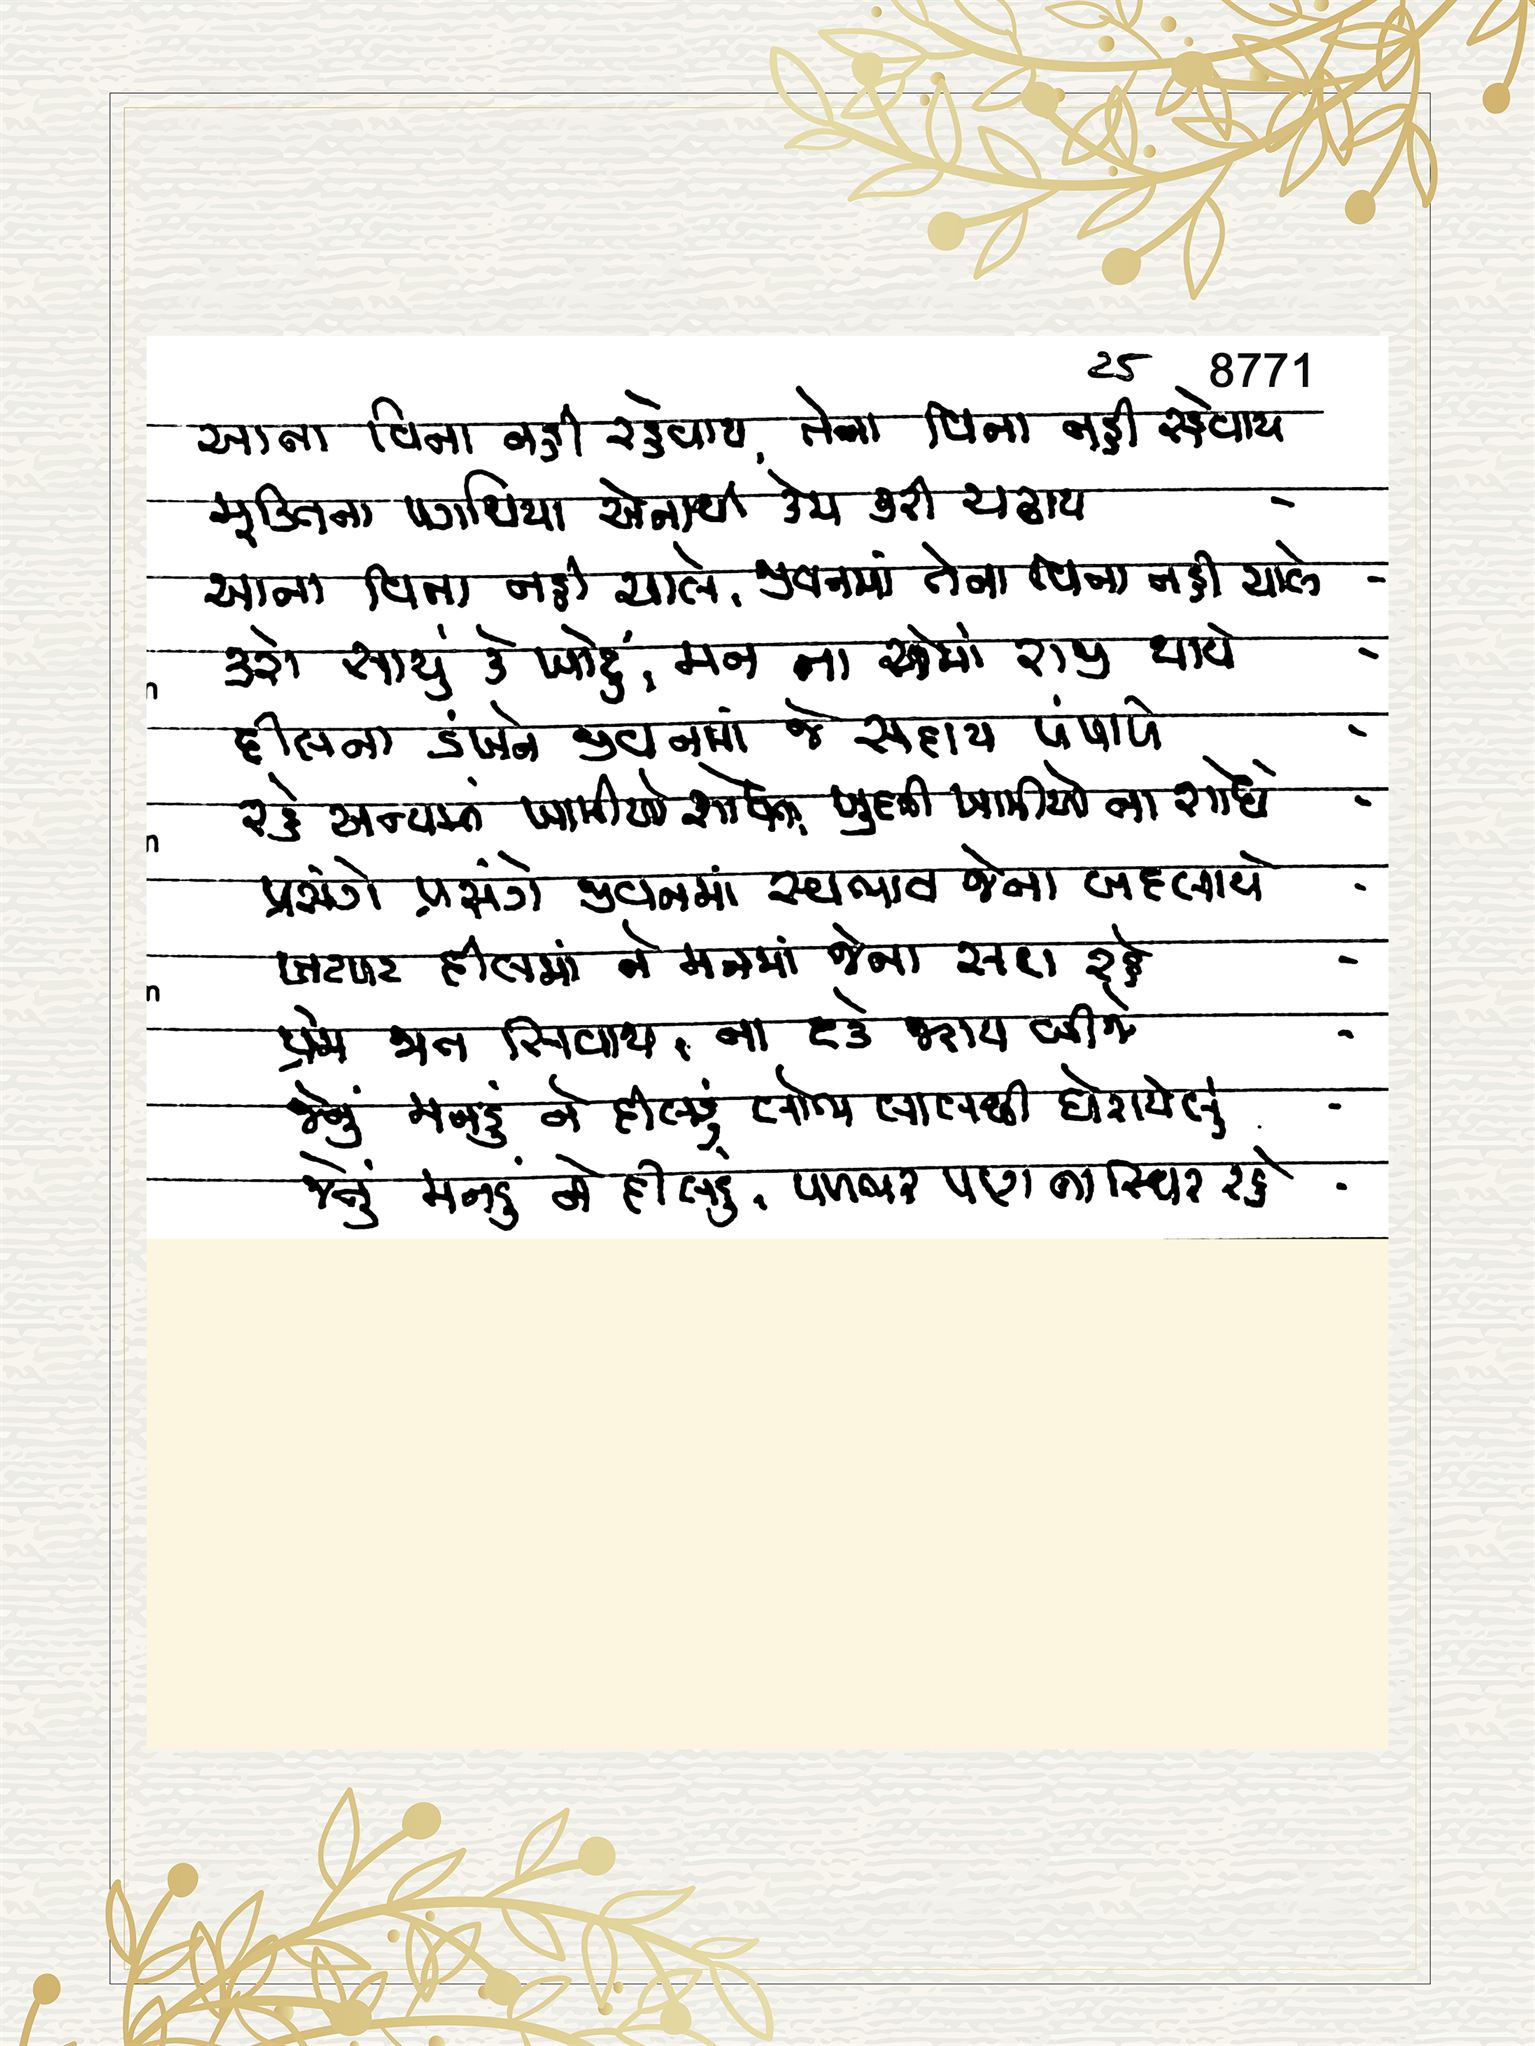 25 8771
આના વિના નહી રહેવાય, તેના વિના નહી સહેવાય
મૂક્તિના પગથિયા એનાથી કેમ કરી ચઢાય -
આના વિના નહી ચાલે, જીવનમાં તેના વિના નહી ચાલે -
કરો સાચું કે ખોટું, મન ના એમાં રાજી થાયે -
દીલના ડંખને જીવનમાં જે સદાય પંપાળે -
રહે અન્યમાં ખામીઓ શોધતા, ખુદની ખામીઓ ના શોધે -
પ્રસંગે પ્રસંગે જીવનમાં સ્વભાવ જેના બદલાયે -
ખટપટ દીલમાં ને મનમાં જેના સદા રહે -
પ્રેમ જીવન સિવાય, ના હકે જરાય બીજે -
જેનું મનડું ને દીલડું લોભ લાલચથી ઘેરાયેલું -
જેનું મનડું ને દીલડું, પળભર પણ ના સ્થિર રહે -